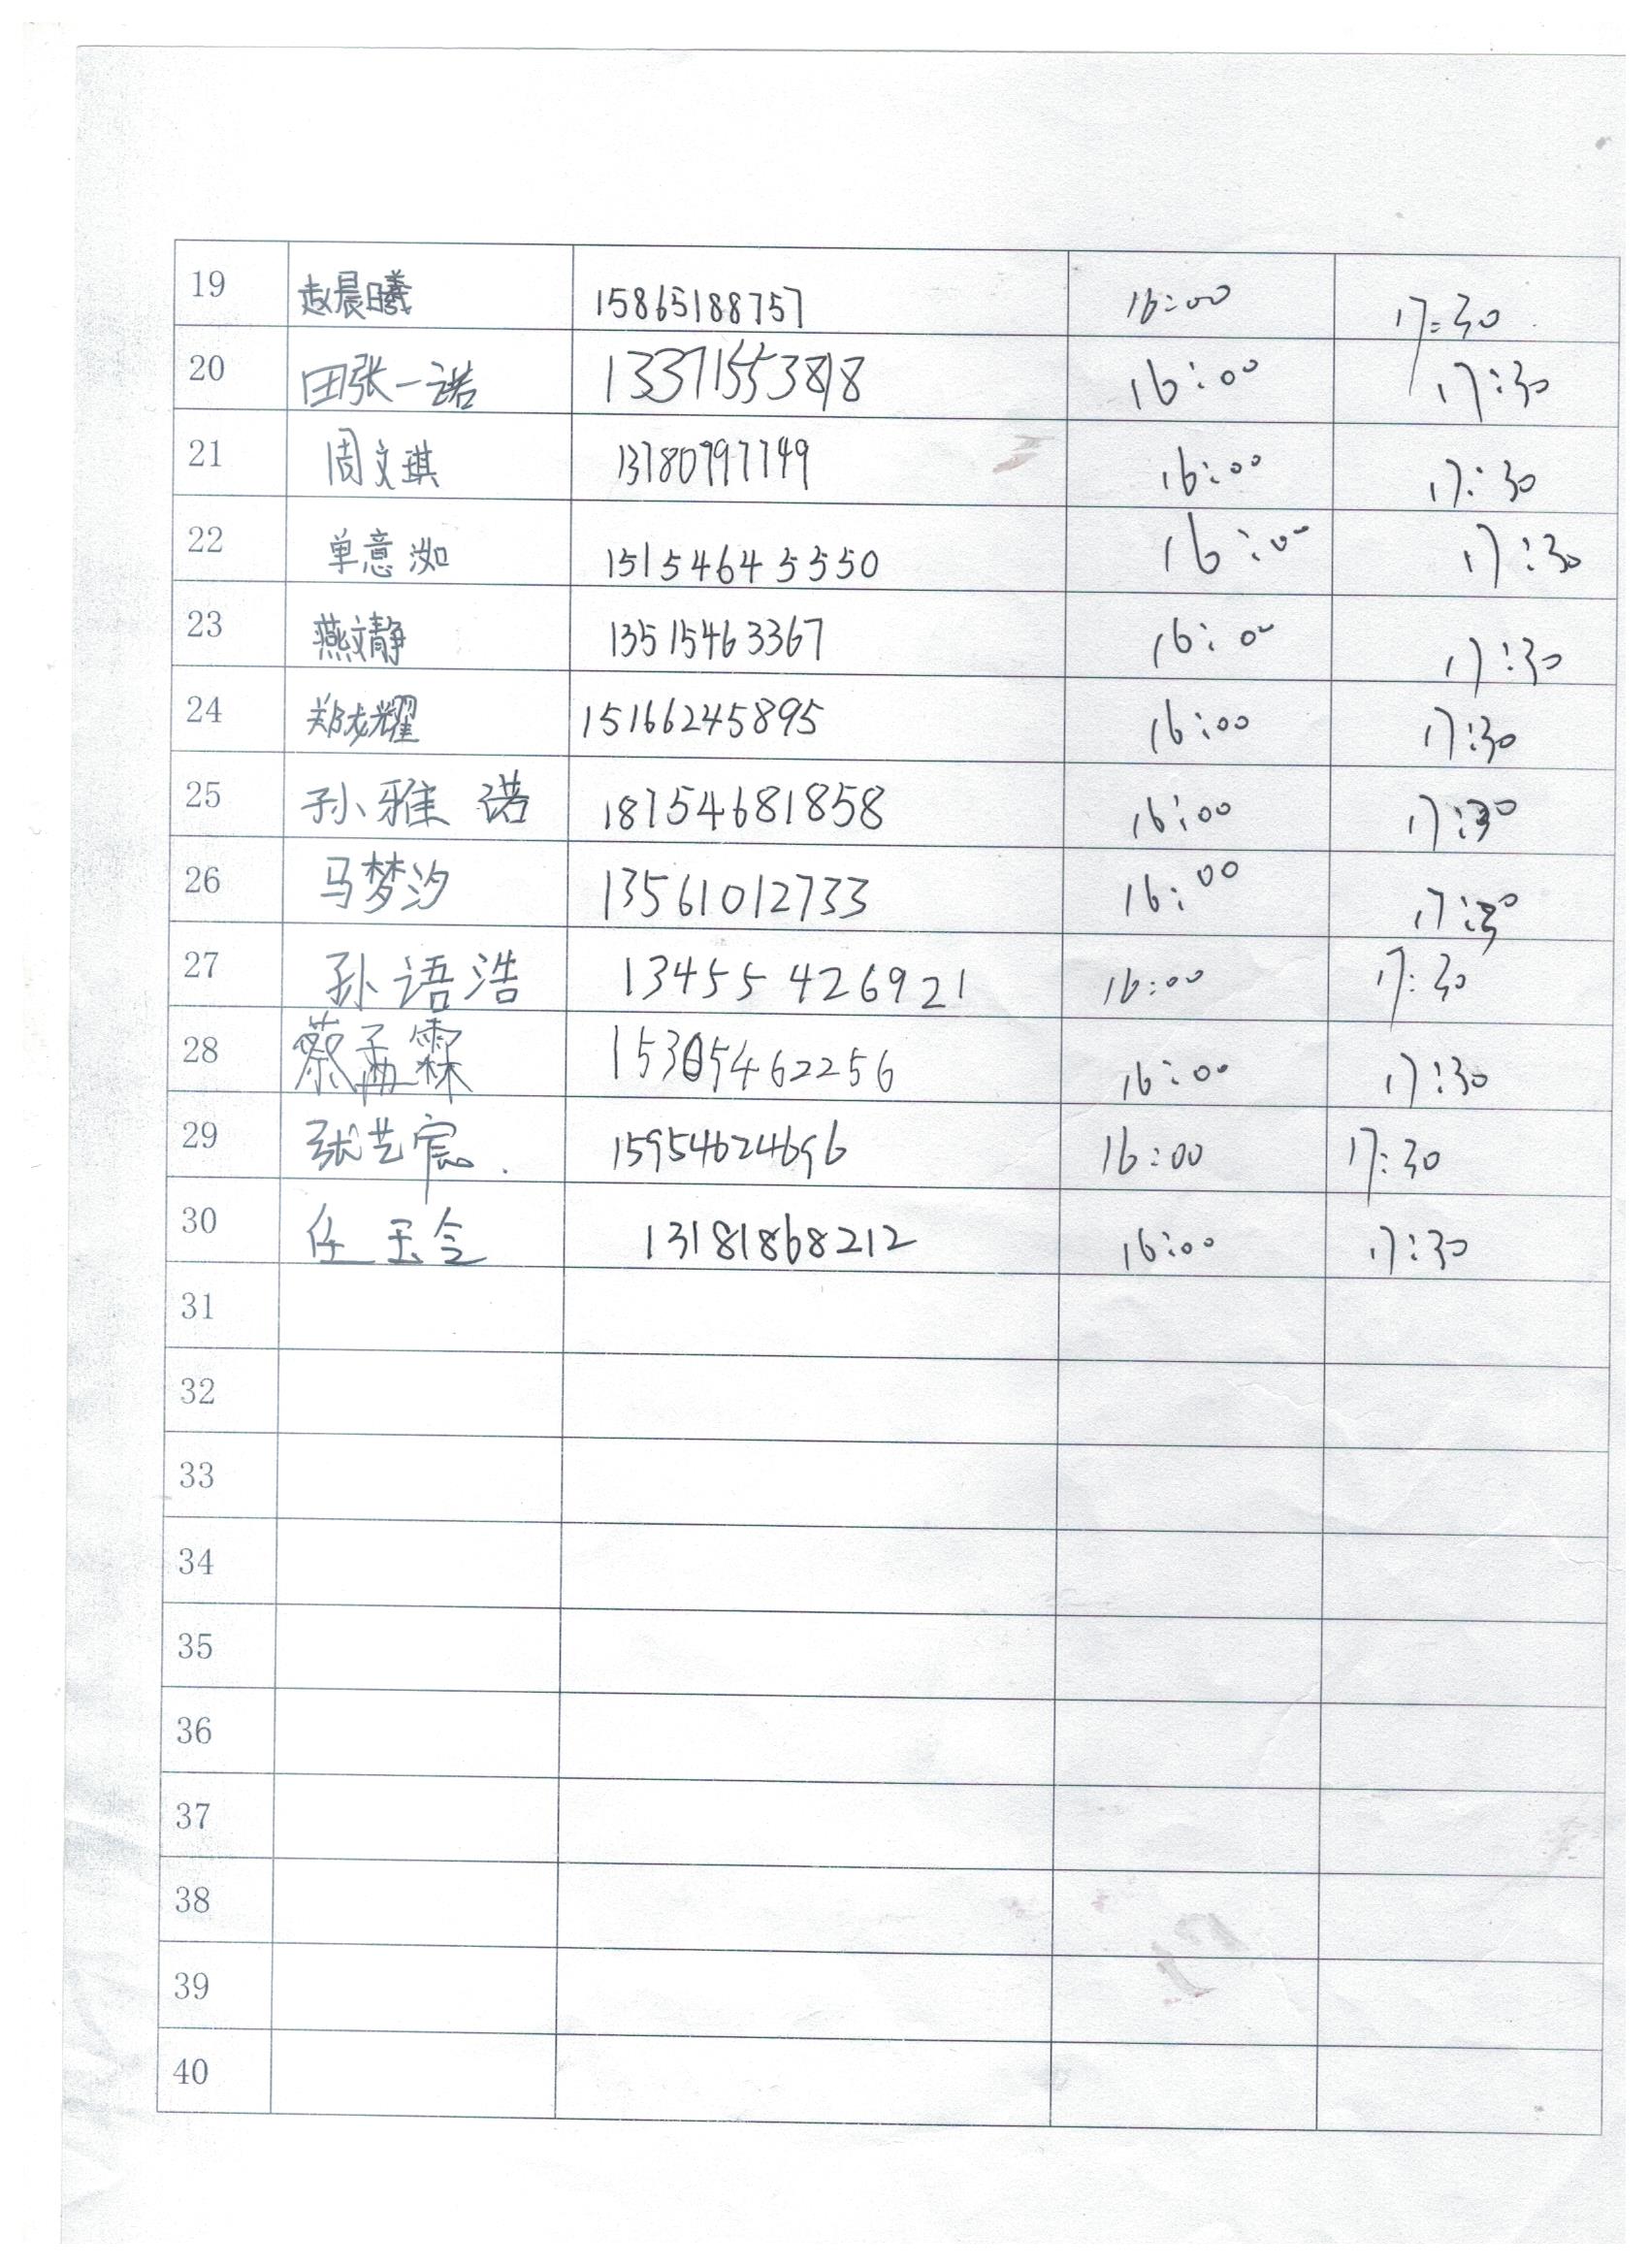 19 赵晨曦 15865188757 16:00 17:30
20 田张一诺 13371553818 16:00 17:30
21 周文琪 13780797749 16:00 17:30
22 单意洳 15154645550 16:00 17:30
23 燕文静 13515463367 16:00 17:30
24 郑成耀 15166245895 16:00 17:30
25 孙雅诺 18754681858 16:00 17:30
26 马梦汐 13561012733 16:00 17:30
27 孙语浩 13455426921 16:00 17:30
28 蔡孟霖 15305462256 16:00 17:30
29 张艺宸 15954624696 16:00 17:30
30 任玉含 13181868212 16:00 17:30
31
32
33
34
35
36
37
38
39
40